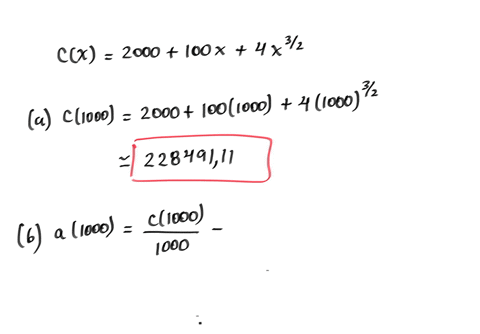 C(x) = 2000 + 100x + 4x^3/2
(a) C(1000) = 2000 + 100(1000) + 4(1000)^3/2
≃ 228491,11
(b) a(1000) = C(1000)/1000 –